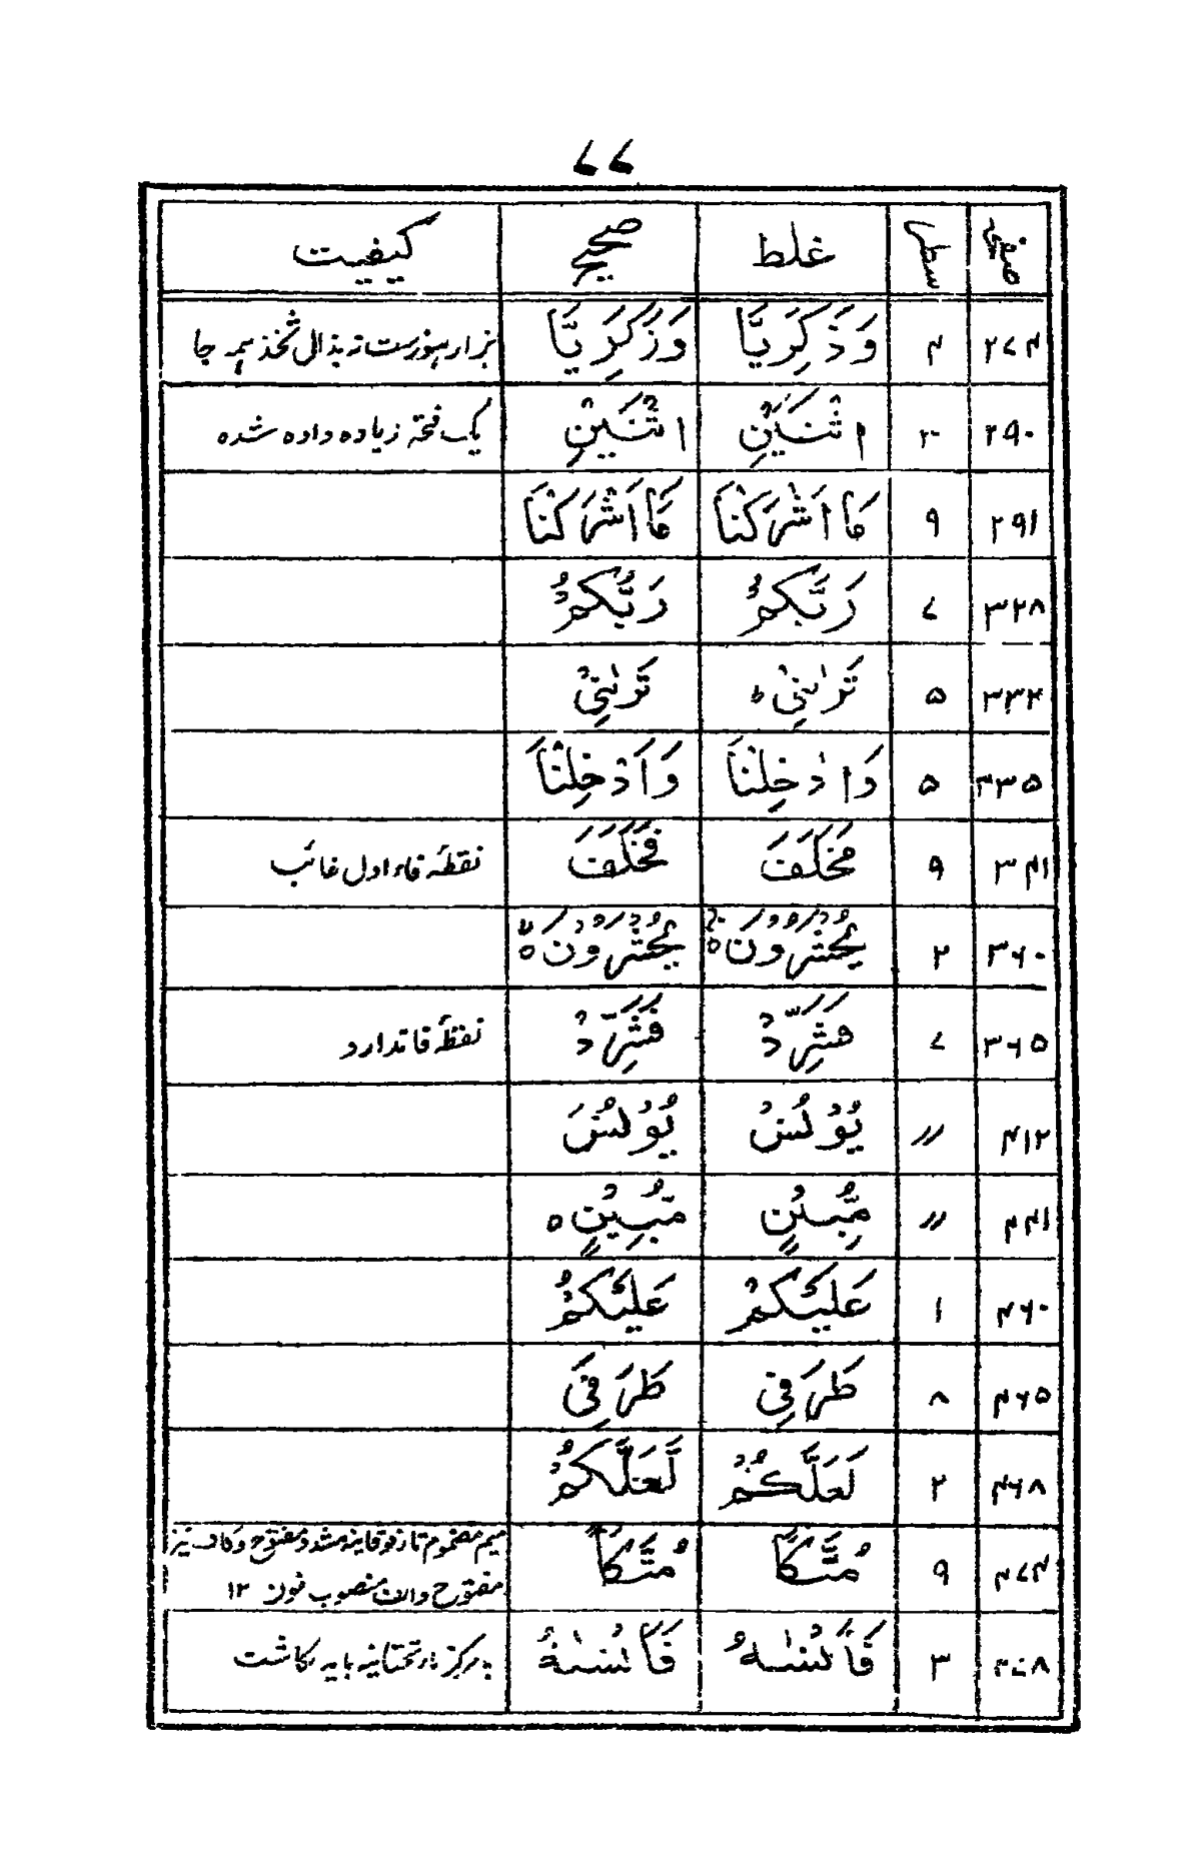 ۷۷
صفحہ سطر غلط صحیح کیفیت
۲۷۴ ۴ وَذَكَرِيَّا وَزَكَرِيَّا بزار ہوز است نہ بذال ثخذ ہمہ جا
۲۹۰ ۲۰ اثْنَيَنِْ اثْنَيْنِ یک فتحہ زیادہ دادہ شدہ
۲۹۱ ۹ مَا اَشْرَكْنَا مَا اَشْرَكْنَا
۳۲۸ ۷ رَبَّكُمْ رَبُّكُمْ
۳۳۴ ۵ تَرٰىنِىْ ط تَرٰىنِىْ
۳۳۵ ۵ وَادْخِلْنَا وَاَدْخِلْنَا
۳۴۱ ۹ مخَلَفَ فَخَلَفَ نقطۂ فاء اول غائب
۳۶۰ ۲ يُحْشَرُوْنَ ۃ يُحْشَرُوْنَ ۃ
۳۶۵ ۷ مشَرِّدْ فَشَرِّدْ نقطۂ فا ندارد
۴۱۲ ״ يُوْنُسُ يُوْنُسَ
۴۴۱ ״ مُّبِيْنٍ مُّبِيْنٍ ہ
۴۶۰ ۱ عَلَيْكُمْ عَلَيْكُمْ
۴۶۵ ۸ طَرَفِىِ طَرَفَىِ
۴۶۸ ۲ لَعَلَّكُمْ لَّعَلَّكُمْ
۴۷۴ ۹ مُتَّكَأً مُتَّكَاً میم مضموم تاء فوقانیہ مشدد مفتوح و کاف نیز
مفتوح والف منصوب نون ۱۲
۴۷۸ ۳ فَاَنْسٰهُ فَاَنْسٰىهُ بر مرکز یاء تحتانیہ باید نگاشت